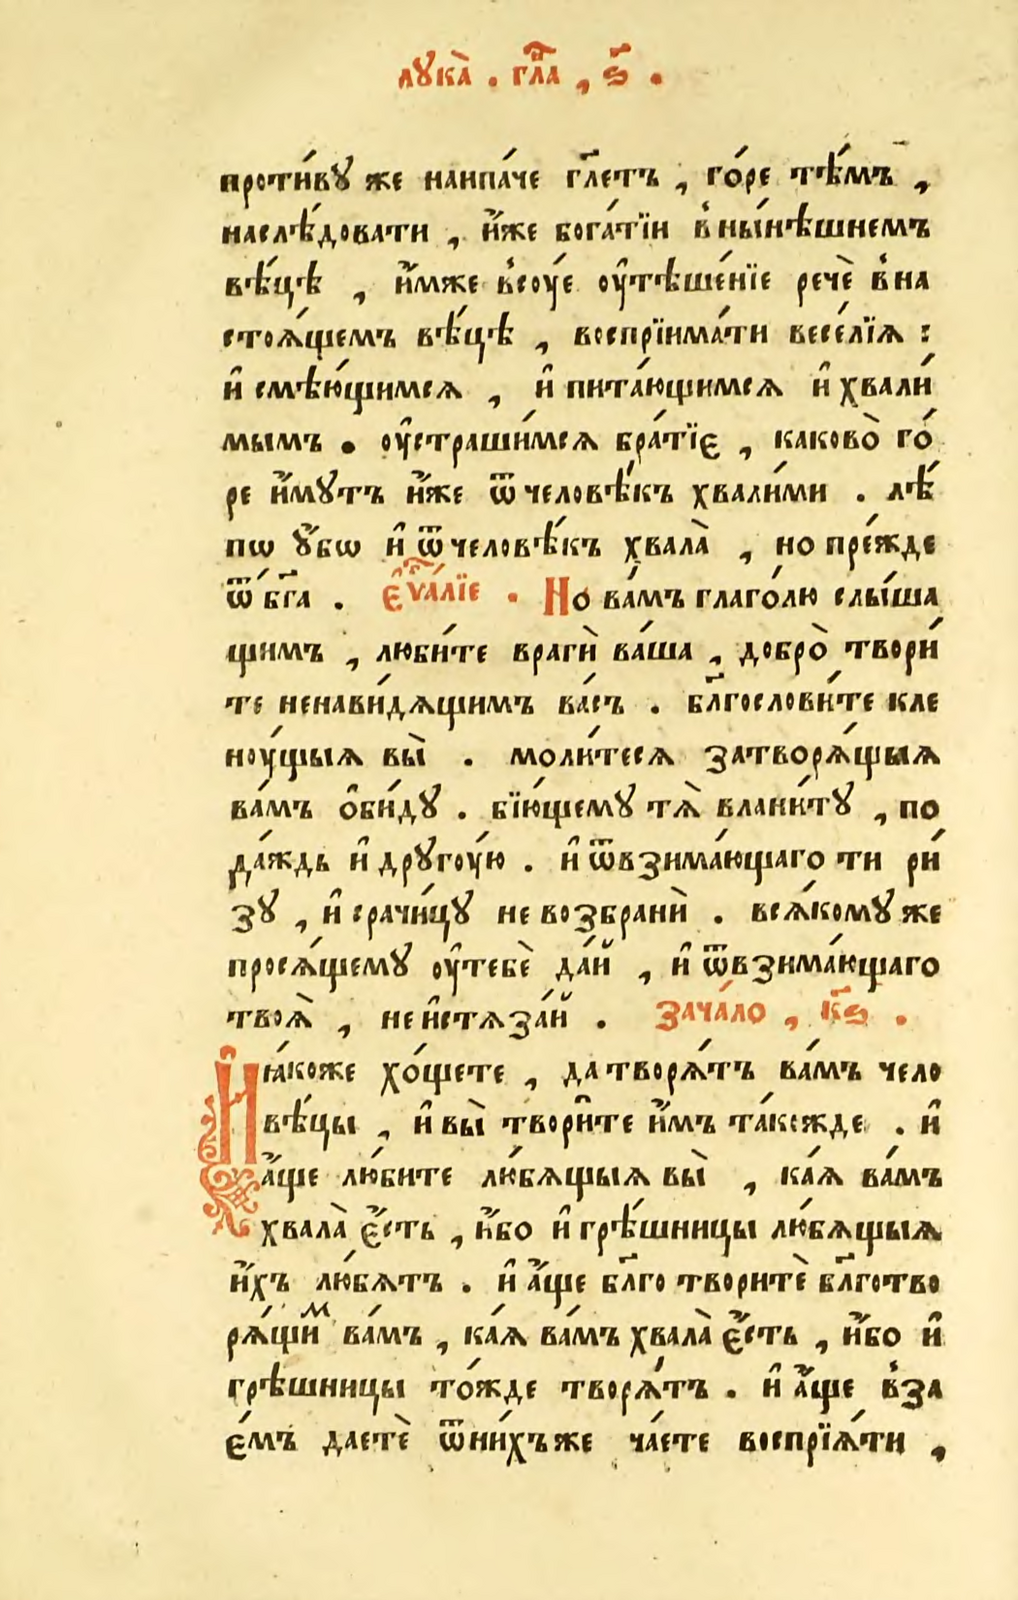 лꙋка̀ . гл҃а , ѕ҃ .
проти́вꙋ же наипа́че гл҃етъ , го́ре тѣ́мъ ,
наслѣ́довати , и҆́же бога́тїи в҆ны́нѣшнемъ
вѣ́цѣ , и҆́мже в҆сꙋ́е оу҆тѣше́нїе речѐ в҆на
стоѧ́щемъ вѣ́цѣ , воспрїима́ти весе́лїѧ :
и҆ смѣю́щимсѧ , и҆ пита́ющимсѧ и҆ хвали́
мымъ . оу҆страши́мсѧ бра́тїє , каково̀ го́
ре и҆́мꙋтъ и҆́же ѿчеловѣ́къ хвали́ми . лѣ́
пѡ ᲂу҆́бѡ и҆ ѿчеловѣ́къ хвала̀ , но пре́жде
ѿ бг҃а . є҆ѵⷢ҇а́лїе . Но ва́мъ глаго́лю слы́ша
щимъ , люби́те врагѝ ва́ша , добро̀ твори́
те ненави́дѧщимъ ва́съ . бл҃гослови́те кле
нꙋ́щыѧ вы̀ . моли́тесѧ затворѧ́щыѧ
ва́мъ ѻ҆би́дꙋ . бїю́щемꙋ тѧ̀ влани́тꙋ , по
да́ждь и҆ дрꙋгꙋ́ю . и҆ ѿвзима́ющаго ти ри́
зꙋ , и҆ срачи́цꙋ не возбранѝ . всѧ́комꙋ же
просѧ́щемꙋ оу҆тебѐ да́й , и҆ ѿвзима́ющаго
твоѧ̀ , не и҆стѧза́й . зача́ло , к҃ѕ .
И ꙗ́коже хо́щете , да творѧ́тъ ва́мъ чело
вѣ́цы , и҆ вы̀ твори́те и҆́мъ та́кожде . и҆
а҆́ще лю́бите лю́бѧщыѧ вы̀ , ка́ѧ ва́мъ
хвала̀ є҆́сть , и҆́бо и҆ грѣ́шницы лю́бѧщыѧ
и҆́хъ лю́бѧтъ . и҆ а҆́ще бл҃го творитѐ бл҃готво
рѧ́щиⷨ ва́мъ , ка́ѧ ва́мъ хвала̀ є҆́сть , и҆́бо и҆
грѣ́шницы то́жде творѧ́тъ . и҆ а҆́ще в҆за
є́мъ даетѐ ѿни́хъже ча́ете воспрїѧ́ти ,